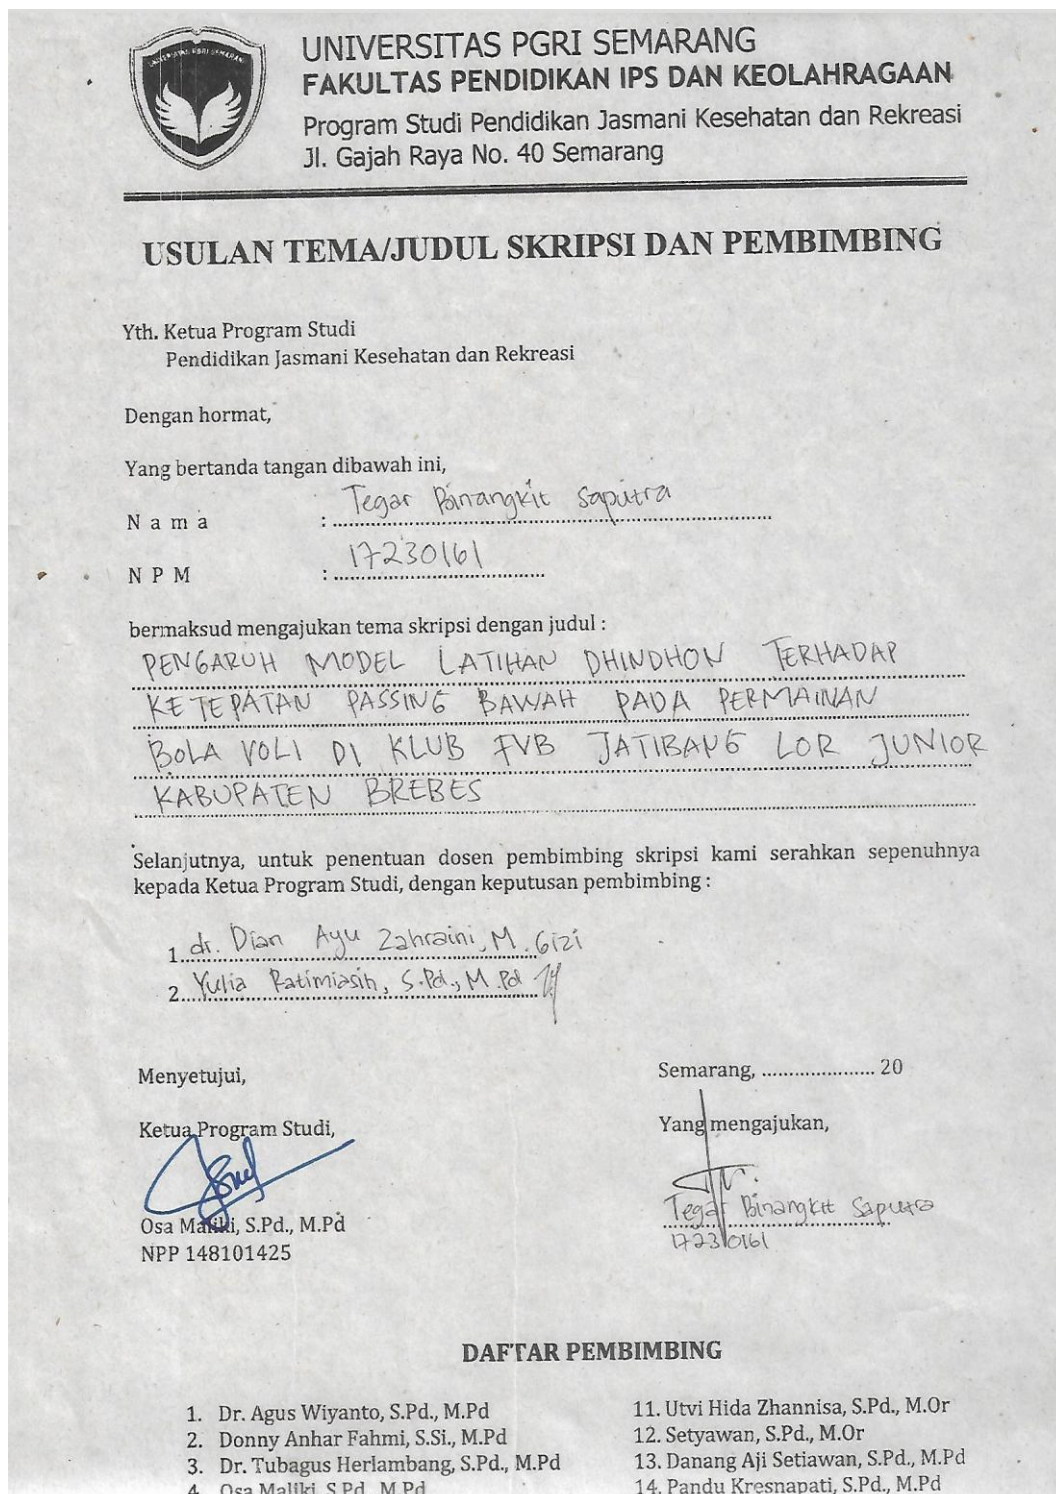 UNIVERSITAS PGRI SEMARANG
UNIVERSITAS PGRI SEMARANG
FAKULTAS PENDIDIKAN IPS DAN KEOLAHRAGAAN
Program Studi Pendidikan Jasmani Kesehatan dan Rekreasi
Jl. Gajah Raya No. 40 Semarang
USULAN TEMA/JUDUL SKRIPSI DAN PEMBIMBING
Yth. Ketua Program Studi
Pendidikan Jasmani Kesehatan dan Rekreasi
Dengan hormat,
Yang bertanda tangan dibawah ini,
N a m a : Tegar Binangkit Saputra
N P M : 17230161
bermaksud mengajukan tema skripsi dengan judul :
PENGARUH MODEL LATIHAN DHINDHON TERHADAP
KETEPATAN PASSING BAWAH PADA PERMAINAN
BOLA VOLI DI KLUB FVB JATIBANG LOR JUNIOR
KABUPATEN BREBES
Selanjutnya, untuk penentuan dosen pembimbing skripsi kami serahkan sepenuhnya
kepada Ketua Program Studi, dengan keputusan pembimbing :
1. dr. Dian Ayu Zahraini, M. Gizi
2. Yulia Ratimiasih, S.Pd., M.Pd
Menyetujui,
Ketua Program Studi,
Osa Maliki, S.Pd., M.Pd
NPP 148101425
Semarang, ..................... 20
Yang mengajukan,
Tegar Binangkit Saputra
17230161
DAFTAR PEMBIMBING
1. Dr. Agus Wiyanto, S.Pd., M.Pd
2. Donny Anhar Fahmi, S.Si., M.Pd
3. Dr. Tubagus Herlambang, S.Pd., M.Pd
4. Osa Maliki, S.Pd., M.Pd
11. Utvi Hida Zhannisa, S.Pd., M.Or
12. Setyawan, S.Pd., M.Or
13. Danang Aji Setiawan, S.Pd., M.Pd
14. Pandu Kresnapati, S.Pd., M.Pd